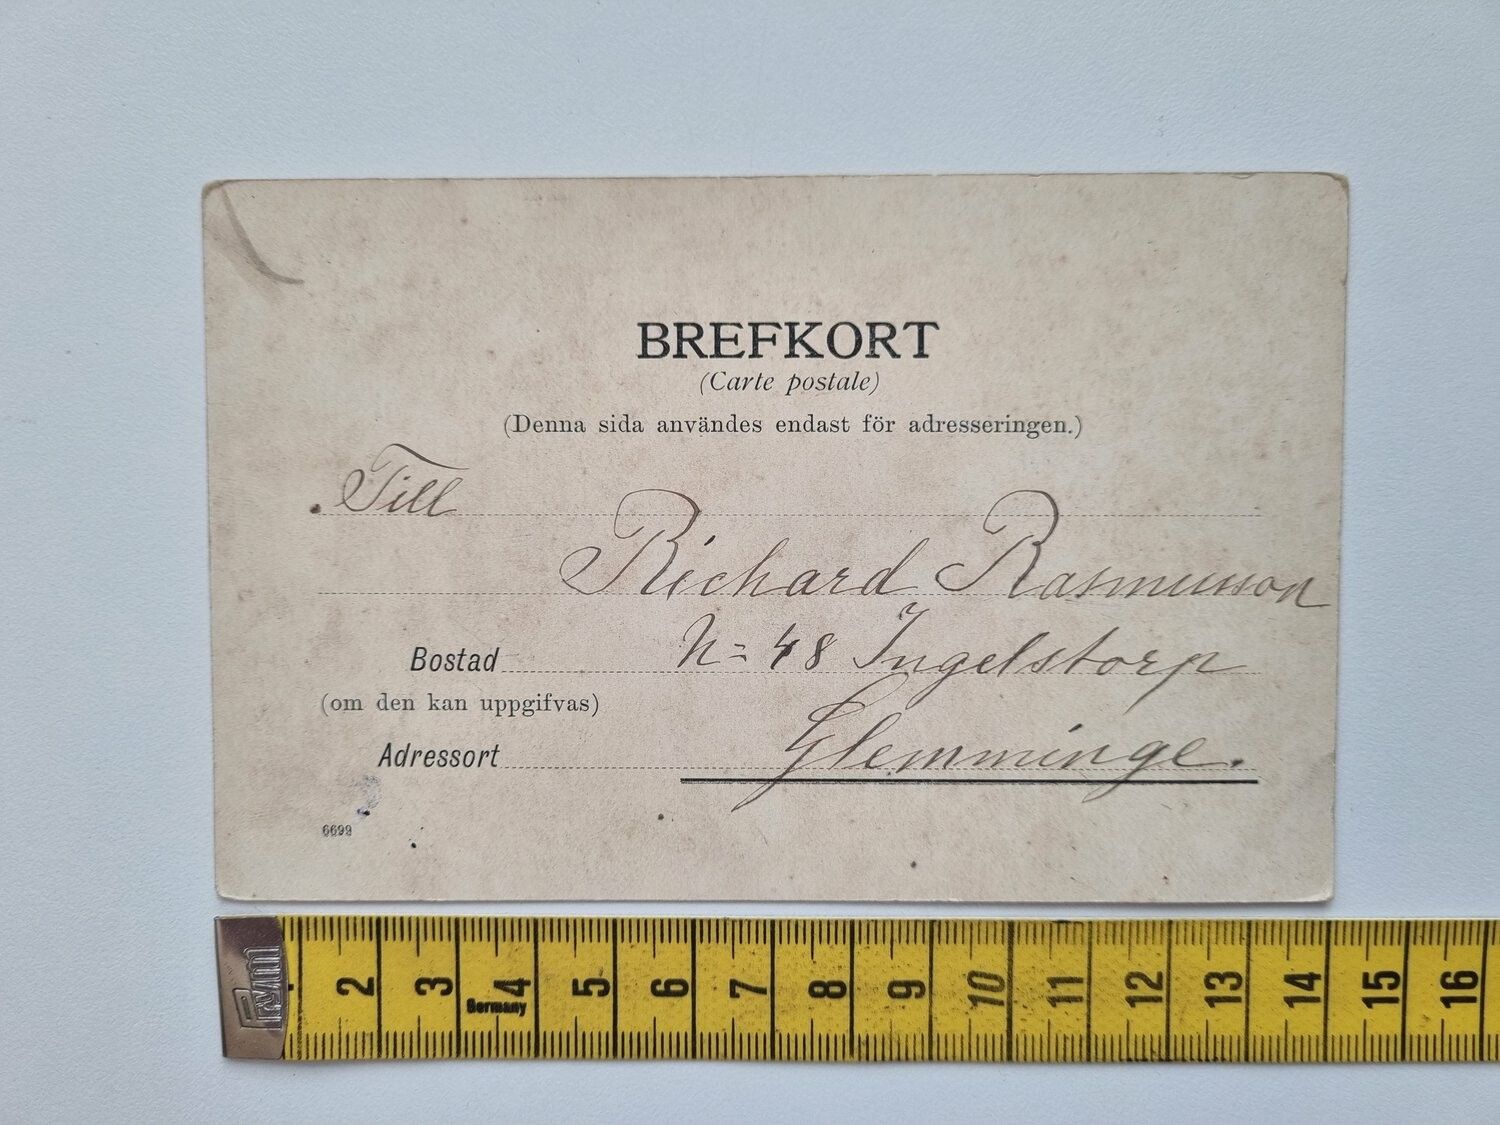 BREFKORT
(Carte postale)
(Denna sida användes endast för adresseringen.)
Till
Richard Rasmusson
Bostad N= 48 Ingelstorp
(om den kan uppgifvas)
Adressort Glemminge.
6699
Prym
2 3 4 5 6 7 8 9 10 11 12 13 14 15 16
Germany